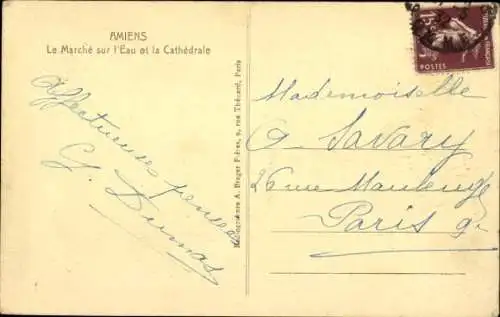 AMIENS
Le Marché sur l'Eau et la Cathédrale
Affectueuses pensées
G. Dumas
A. Breger Frères, 9, rue Thénard, Paris
POSTES
Mademoiselle
Savary
26 rue Maubeuge
Paris 9e